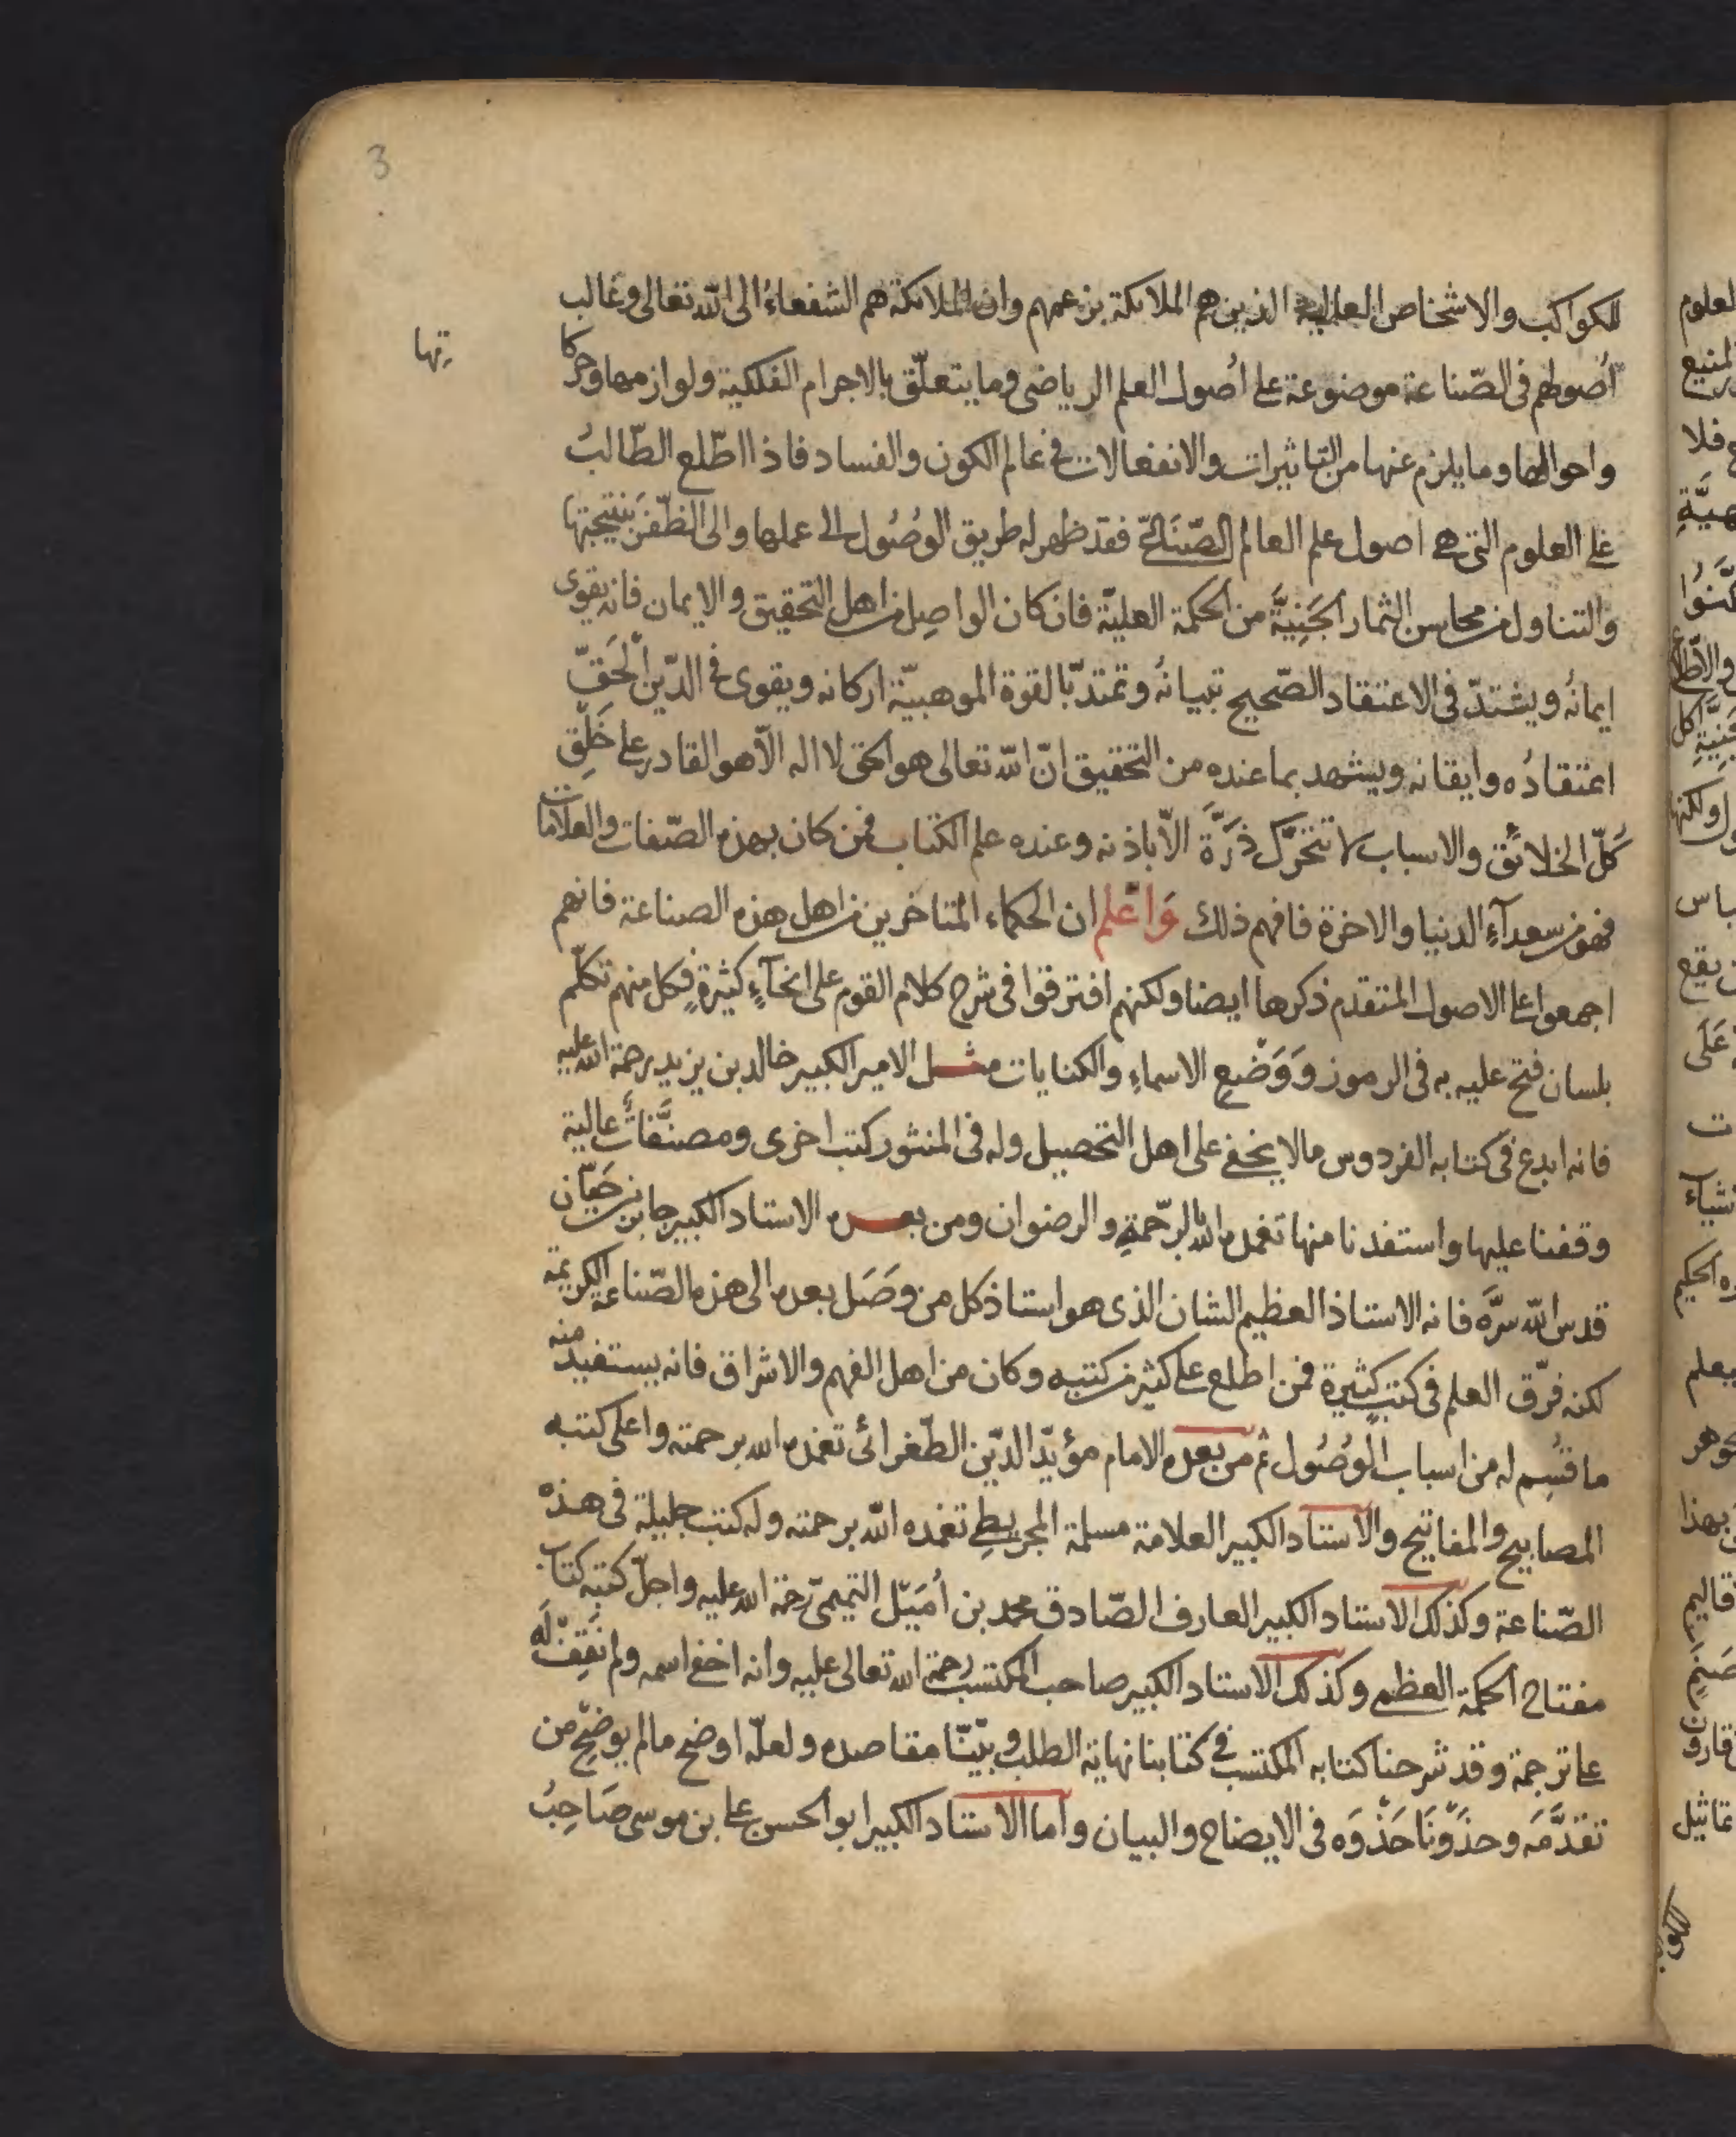 3
للكواكب والاشخاص العالية الذين هم الملائكة بزعمهم وان الملائكة هم الشفعاءُ الى الله تعالى وغالب
اُصولهم فى الصّناعة موضوعة على اُصول العلم الرياضى وما يتعلّق بالاجرام الفلكية ولوازمها وحركا
تها
واحوالها وما يلزم عنها من التاثيرات والانفعالات فى عالم الكون والفساد فاذا اطّلع الطّالبُ
على العلوم التى هى اصول علم العالم الصّنَاعىّ فقد ظهر له طريق الوصُول الى عملها والى الظّفَر بنتيجتها
والتناول من محاسن الثمار الجَنِيَّة من الحكمة العليّة فان كان الواصِل من اهل التحقيق والايمان فانه يقوى
ايمانُه ويشتدّ فى الاعتقاد الصّحيح تبيانُه وتمتدّ بالقوة الموهبيّة اركانه ويقوى فى الدّين الْحَقّ
اعتقادُه وايقانه ويشهد بما عنده من التحقيق انّ الله تعالى هو الحق لا اله الّا هو القادر على خَلْق
كُلّ الخلائق والاسباب لا تتحَرّك ذَرَّة الّا باذنه وعنده علم الكتاب فمن كان بهذه الصّفات والعلامات
فهو من سعدآءِ الدنيا والاخرة فافهم ذلك وَاعْلم ان الحكماء المتاخرين من اهل هذه الصناعة فانهم
اجمعوا على الاصول المتقدم ذكرها ايضا ولكنهم افترقوا فى شرح كلام القوم على انحآءٍ كثيرةٍ فكل منهم تكلّم
بلسان فتح عليه به فى الرموز وَوَضْعِ الاسماءِ والكنايات مثل الامير الكبير خالد بن يزيد رحمة الله عليه
فانه ابدع فى كتابه الفردوس ما لا يخفى على اهل التحصيل وله فى المنثور كتب اخرى ومصنَّفات عالية
وقفنا عليها واستفدنا منها تغمده الله بالرّحمةِ والرضوان ومن بعده الاستاد الكبير جابر بن حَيّان
قدس الله سرَّه فانه الاستاذ العظيم الشان الذى هو استاذ كل من وصَل بعده الى هذه الصّناعة الكريمة
لكنه فرّق العلم فى كتبٍ كثيرة فمن اطلع على كثير من كتبه وكان من اهل الفهم والاشراق فانه يستفيد منه
ما قسُم له من اسباب الوصُول ثم من بعده الامام مؤيّد الدّين الطّغرائى تغمده الله برحمته واعلى كتبه
المصابيح والمفاتيح والاستاد الكبير العلامة مسلمة المجريطى تغمده الله برحمته وله كتب جليلة فى هذه
الصّناعة وكذلك الاستاد الكبير العارف الصّادق محمد بن اُمَيْل التميمىّ رحمة الله عليه واجلّ كتبه كتاب
مفتاح الحكمة العظمى وكذلك الاستاد الكبير صاحب المكتسب رحمة الله تعالى عليه وانه اخفى اسمه ولم نَقِفْ لَه
على ترجمة وقد شرحنا كتابه المكتسب فى كتابنا نهاية الطلب وبيّنّا مقاصده ولعلّه اوضح ما لم يوضّح من
تقدَّمَه وحذَوْنَا حَذْوَه فى الايضاح والبيان واما الاستاد الكبير ابو الحسن على بن موسى صَاحِبُ